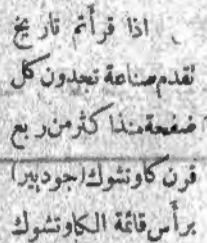 اذا قرأتم تاريخ
تقدم صناعة تجدون كل
صفحة منذ اكثر من ربع
قرن كاوتشوك (جوديير)
برأس قائمة الكاوتشوك